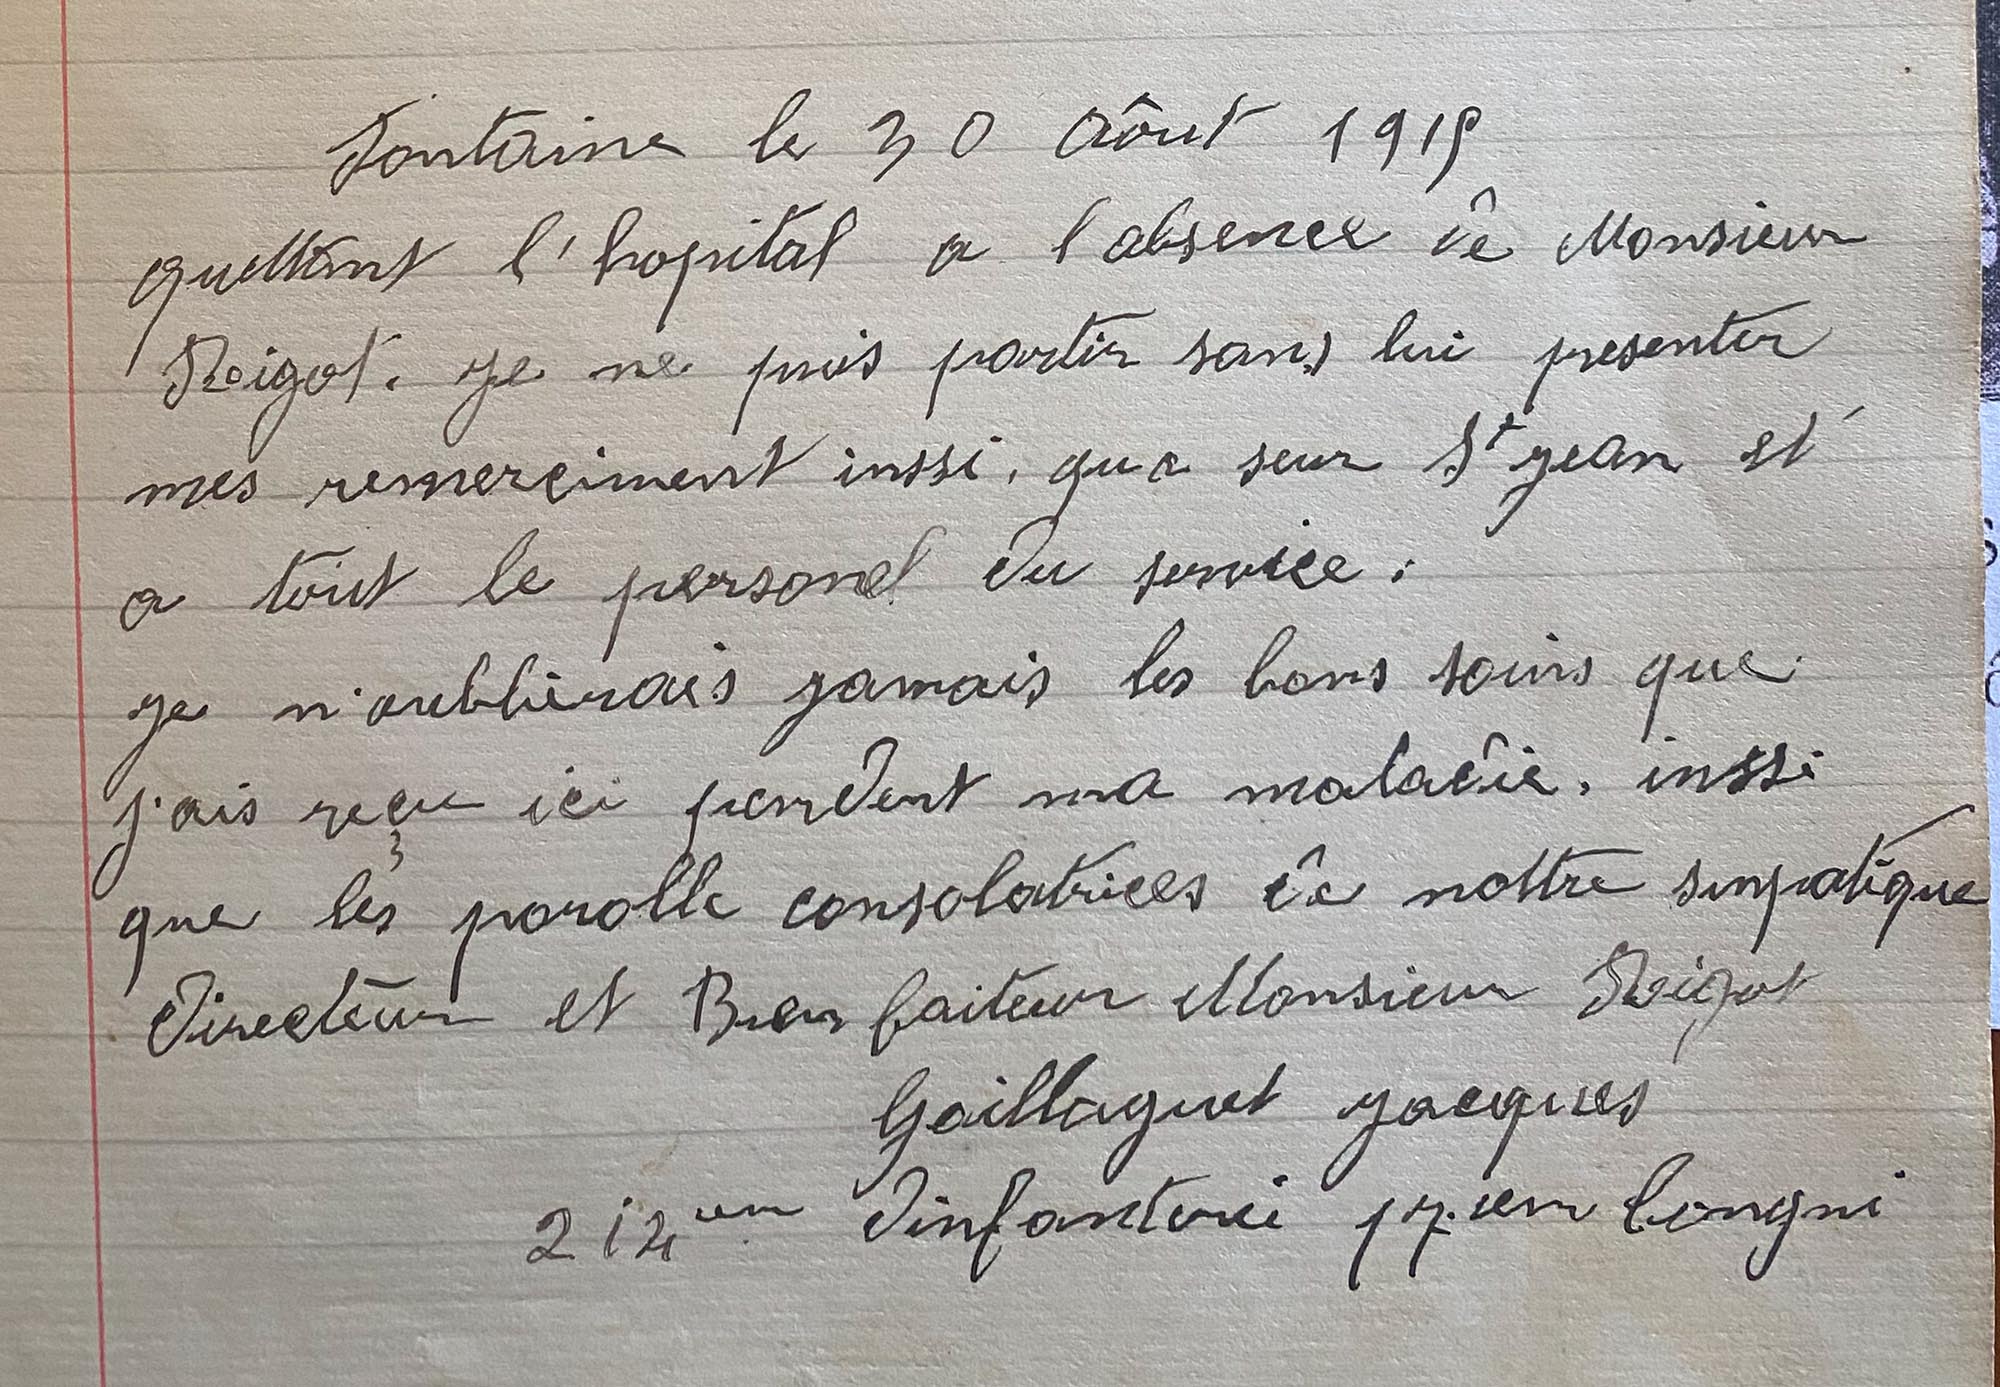 Fontaine le 30 Aôut 1915
quettent l'hopital a l'absence de Monsieur
Noigot. je ne puis partir sans lui presenter
mes remerciment inssi, que seur St jean et
a tout le personel du service.
je n'oublierais jamais les bons soins que
j'ais reçu ici pendent ma maladie, inssi
que les parolle consolatrices de nottre sinpatique
Directeur et Bien faiteur Monsieur Noigot
Gaillaguet jacques
212em d'infanterie 17.iem Congni